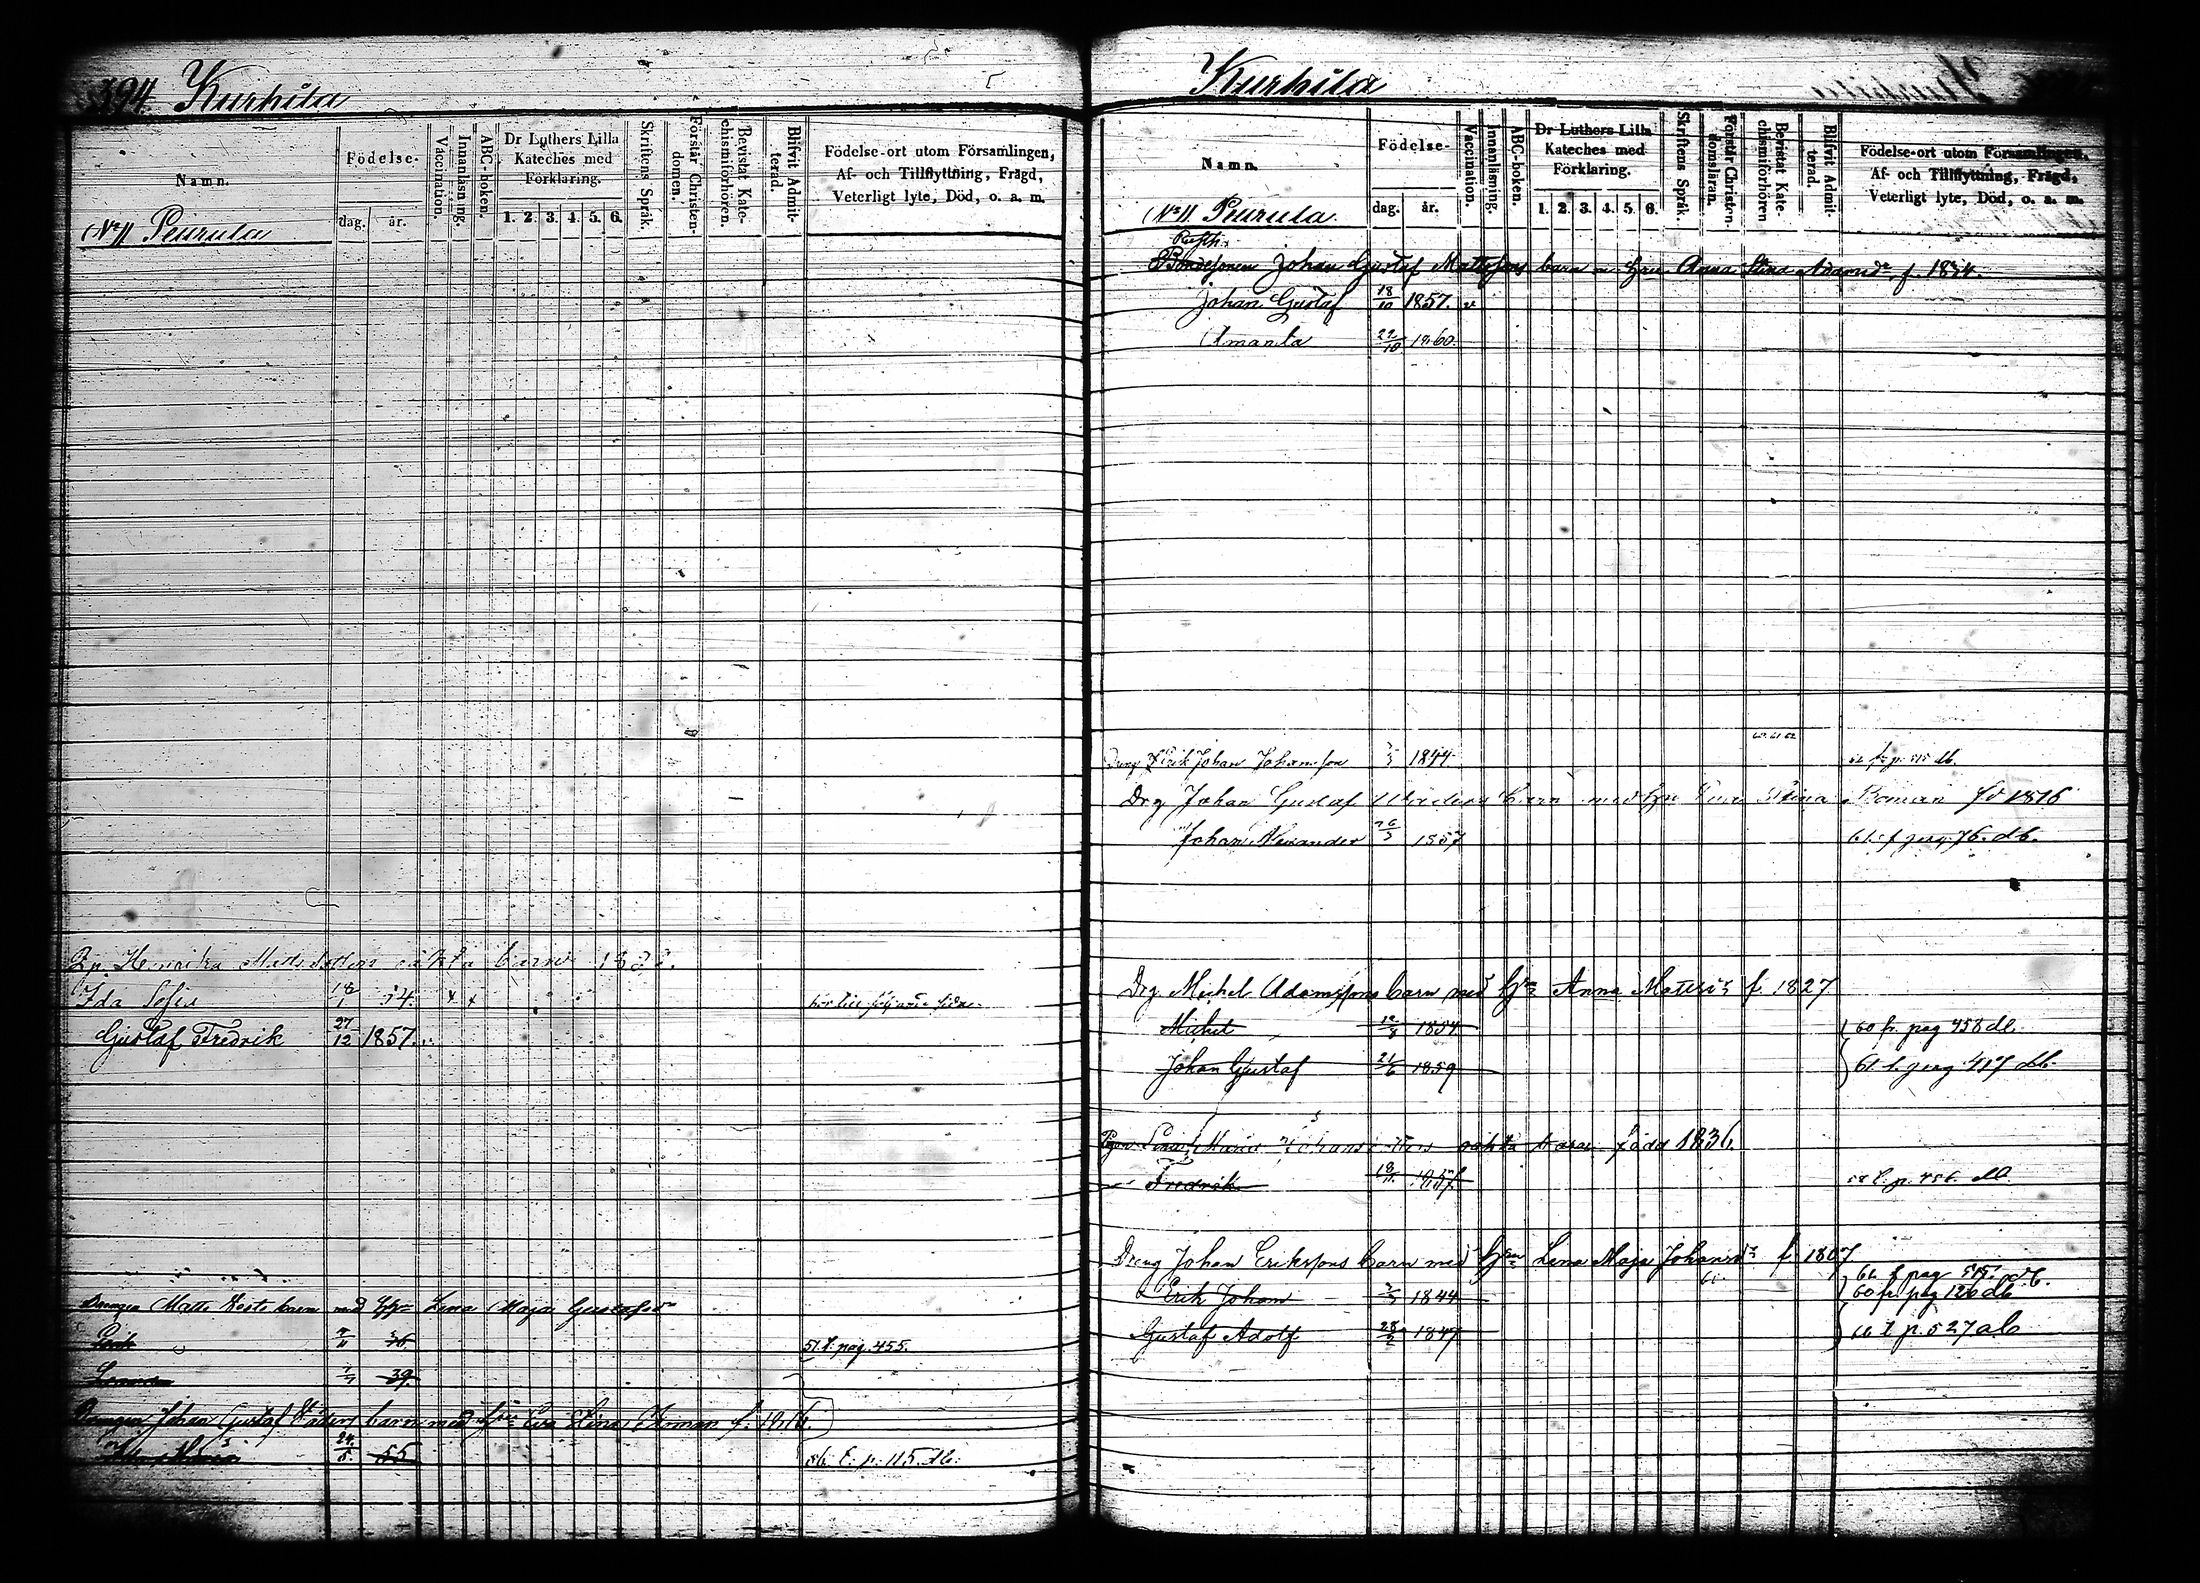 394. Kurhila
Namn.
Födelse-
dag. år.
Vaccination.
Innanläsning.
ABC-boken.
Dr Luthers Lilla Kateches med Förklaring.
1. 2. 3. 4. 5. 6.
Skriftens Språk.
Förstår Christendomen.
Bevistat Katechismiförhören.
Blifvit Admitterad.
Födelse-ort utom Församlingen,
Af- och Tillflyttning, Frägd,
Veterligt lyte, Död, o. a. m.
No 11 Peurula
Ida Sofia 18/1 54. x x
Gustaf Fredrik 27/12 1857.
Drengen Matts barn med Hu Lena Maja Gustafsdr
36. 57. t. pag. 455.
39.
Drengen Johan Gustaf barn med Hu Eva Stina Roman f. 1816.
24/5. 55 56. t. p. 115. db.
Kurhila
Namn.
Födelse-
dag. år.
Vaccination.
Innanläsning.
ABC-boken.
Dr Luthers Lilla Kateches med Förklaring.
1. 2. 3. 4. 5. 6.
Skriftens Språk.
Förstår Christendomsläran.
Bevistat Katechismiförhören
Blifvit Admitterad.
Födelse-ort utom Församlingen.
Af- och Tillflyttning, Frägd,
Veterligt lyte, Död, o. a. m.
No 11 Peurula
Bondesonen Johan Gustaf Mattssons barn m Hru Anna Stina f. 1834.
Johan Gustaf 18/10 1857. v
Amanda 22/10 1860.
60. 61. 62
Dreng Erik Johan Johansson 1844 62 fr p. 515 db.
Drg Johan Gustaf barn med Hu Eva Stina Roman fd 1816
Johan Alexander 26/3 1857 61. f pag. 76. db.
Drg Michel Adamssons barn med Hu Anna Matsdr f. 1827
Michel 12/8 1854 60 fr. pag 458 db.
Johan Gustaf 21/6 1859 61. t. pag. 417 db.
Maria oäkta barn född 1836.
Fredrik 18/11 1857. 58 t. p. 456. db.
Dreng Johan Erikssons barn med Hun Lena Maja Johansdr f. 1807
62 f pag 515 db.
Erik Johan 1844 60 fr pag 126 db
Gustaf Adolf 28/2 1847 60 t p. 527 ab